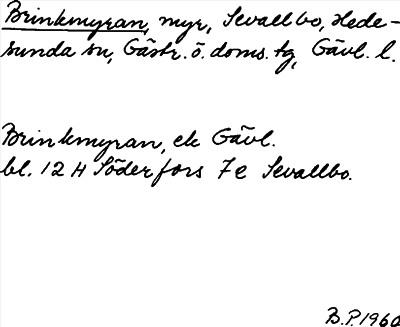 Brinkmyran, myr, Sevallbo, Hede-
sunda sn, Gästr. ö. doms. tg, Gävl. l.
Brinkmyran, ek Gävl.
bl. 12 H Söderfors 7 e Sevallbo.
B.P. 1960